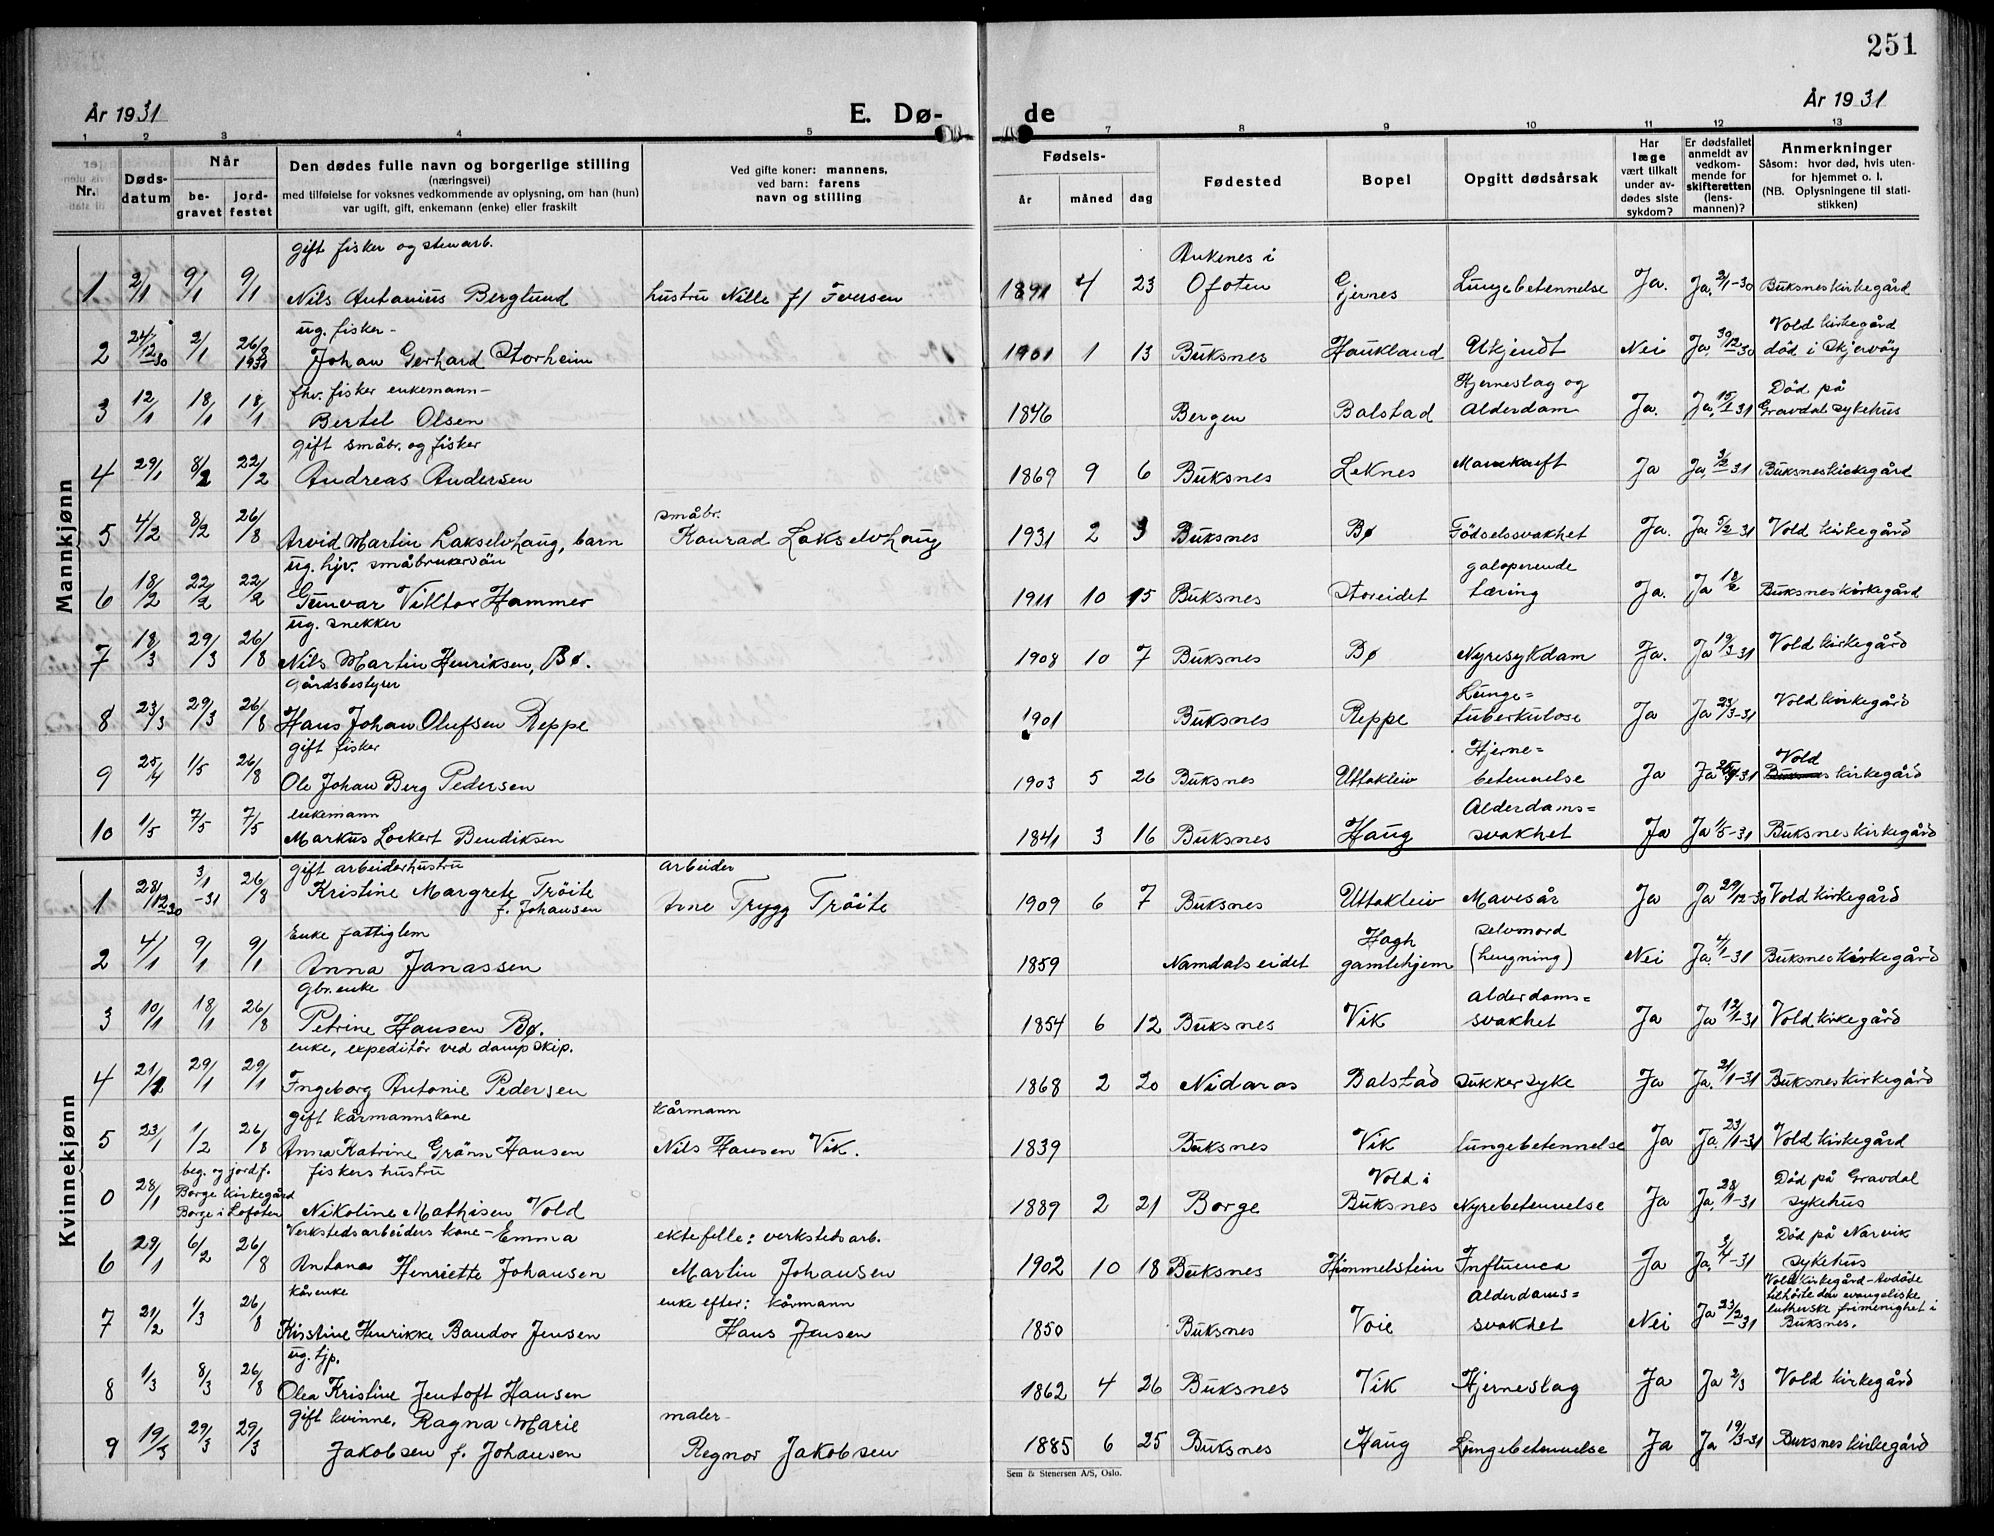 251
År 1931 E. Dø- de År 1931
1 2 3 4 5 7 8 9 10 11 12 13
Nr. Døds-datum Når be-gravet jord-festet Den dødes fulle navn og borgerlige stilling (næringsvei) med tilføielse for voksnes vedkommende av oplysning, om han (hun) var ugift, gift, enkemann (enke) eller fraskilt Ved gifte koner: mannens, ved barn: farens navn og stilling Fødsels- år måned dag Fødested Bopel Opgitt dødsårsak Har læge vært tilkalt under av-dødes siste sykdom? Er dødsfallet anmeldt av vedkom-mende for skifteretten (lens-mannen)? Anmerkninger Såsom: hvor død, hvis uten-for hjemmet o. l. (NB. Oplysningene til stati-stikken)
Mannkjønn
gift fisker og stenarb. Ankenes i
1 2/1 9/1 9/1 Nils Antonius Berglund hustru Nille f/ Iversen 1891 4 23 Ofoten Gjernes Lungebetennelse Ja. Ja, 2/1-30 Buksnes kirkegård
ug. fisker- Vold kirkegård
2 24/12 30 2/1 26/8 1931 Johan Gerhard Storheim 1901 1 13 Buksnes Haukland Ukjendt Nei Ja 30/12-30 död i Skjervöy
fhv. fisker enkemann- Hjerneslag og Död på
3 12/1 18/1 18/1 Bertel Olsen 1846 Bergen Balstad Alderdom Ja. Ja, 15/1-31 Gravdal sykehus
gift småbr. og fisker
4 29/1 8/2 22/2 Andreas Andersen 1869 9 6 Buksnes Leknes Mavekreft Ja Ja, 3/2-31 Buksnes kirkegård
småbr.
5 4/2 8/2 26/8 Arvid Martin Lakselvhaug, barn Konrad Lakselvhaug 1931 2 3 Buksnes Bø Födselssvakhet Ja. Ja, 5/2-31 Vold kirkegård
ug. hjv. småbrukersön galoperende
6 18/2 22/2 22/2 Gunvar Viktor Hammer 1911 10 15 Buksnes Storeidet tæring Ja. Ja Buksnes kirkegård
ug. snekker
7 18/3 29/3 26/8 Nils Martin Henriksen, Bø. 1908 10 7 Buksnes Bø Nyresykdom Ja. Ja 19/3-31 Vold kirkegård
Gårdsbestyrer Lunge=
8 23/3 29/3 26/8 Hans Johan Olufsen Reppe 1901 Buksnes Reppe tuberkulose Ja Ja 23/3-31 Vold kirkegård
gift fisker Hjerne= Vold
9 25/4 1/5 26/8 Ole Johan Berg Pedersen 1903 5 26 Buksnes Uttakleiv betennelse Ja Ja Buksnes kirkegård
enkemann Alderdoms=
10 1/5 7/5 7/5 Markus Lockert Bendiksen 1841 3 16 Buksnes Haug svakhet Ja Ja 1/5-31 Buksnes kirkegård
Kvinnekjønn
gift arbeiderhustru arbeider
1 28/12 30 3/1-31 26/8 Kristine Margrete Tröite f. Johansen Arne Trygg Tröite 1909 6 7 Buksnes Uttakleiv Mavesår Ja Ja 29/12-30 Vold kirkegård
Enke fattiglem Hagh selvmord
2 4/1 9/1 9/1 Anna Janassen 1859 Namdalseidet gamlehjem (hengning) Nei Ja, 4/1-31 Buksnes kirkegård
Gbr. enke alderdoms=
3 10/1 18/1 26/8 Petrine Hansen Bø. 1854 6 12 Buksnes Vik svakhet Ja Ja 12/1-31 Vold kirkegård
enke, expeditör ved dampskip.
4 21/1 29/1 29/1 Ingeborg Antonie Pedersen 1868 2 20 Nidaros Balstad Sukkersyke Ja Ja, 21/1-31 Buksnes kirkegård
gift kårmannskone Kårmann
5 23/1 1/2 26/8 Anna Katrine Grönn Hansen Nils Hansen Vik. 1839 Buksnes Vik lungebetennelse Ja Ja, 23/1-31 Vold kirkegård
beg. og jordf. fiskers hustru Vold i Död på Gravdal
0 28/1 Borge kirkegård Borge i Lofoten Nikoline Mathisen Vold 1889 2 21 Borge Buksnes Nyrebetennelse Ja Ja, 28/1-31 sykehus
Verkstedsarbeiders kone - Emma ektefelle: verkstedsarb. Död på Narvik
6 29/1 6/2 26/8 Antona Henriette Johansen Martin Johansen 1902 10 18 Buksnes Himmelstein Influenca Ja Ja, 3/4-31 sykehus
Kårenke enke efter: kårmann Alderdoms= Vold kirkegård - Avdöde tilhörte den evangeliske
7 21/2 1/3 26/8 Kristine Henrikke Bandor Jensen Hans Jensen 1850 Buksnes Voie svakhet Nei Ja 23/2-31 lutherske frimenighet i Buksnes.
ug. tjp.
8 1/3 8/3 26/8 Olea Kristine Jentoft Hansen 1862 4 26 Buksnes Vik Hjerneslag Ja Ja 2/3 Vold kirkegård
gift kvinne, Ragna Marie maler-
9 19/3 29/3 29/3 Jakobsen f. Johansen Regnor Jakobsen 1885 6 25 Buksnes Haug Lungebetennelse Ja Ja 19/3-31 Buksnes kirkegård
Sem & Stenersen A/S, Oslo.